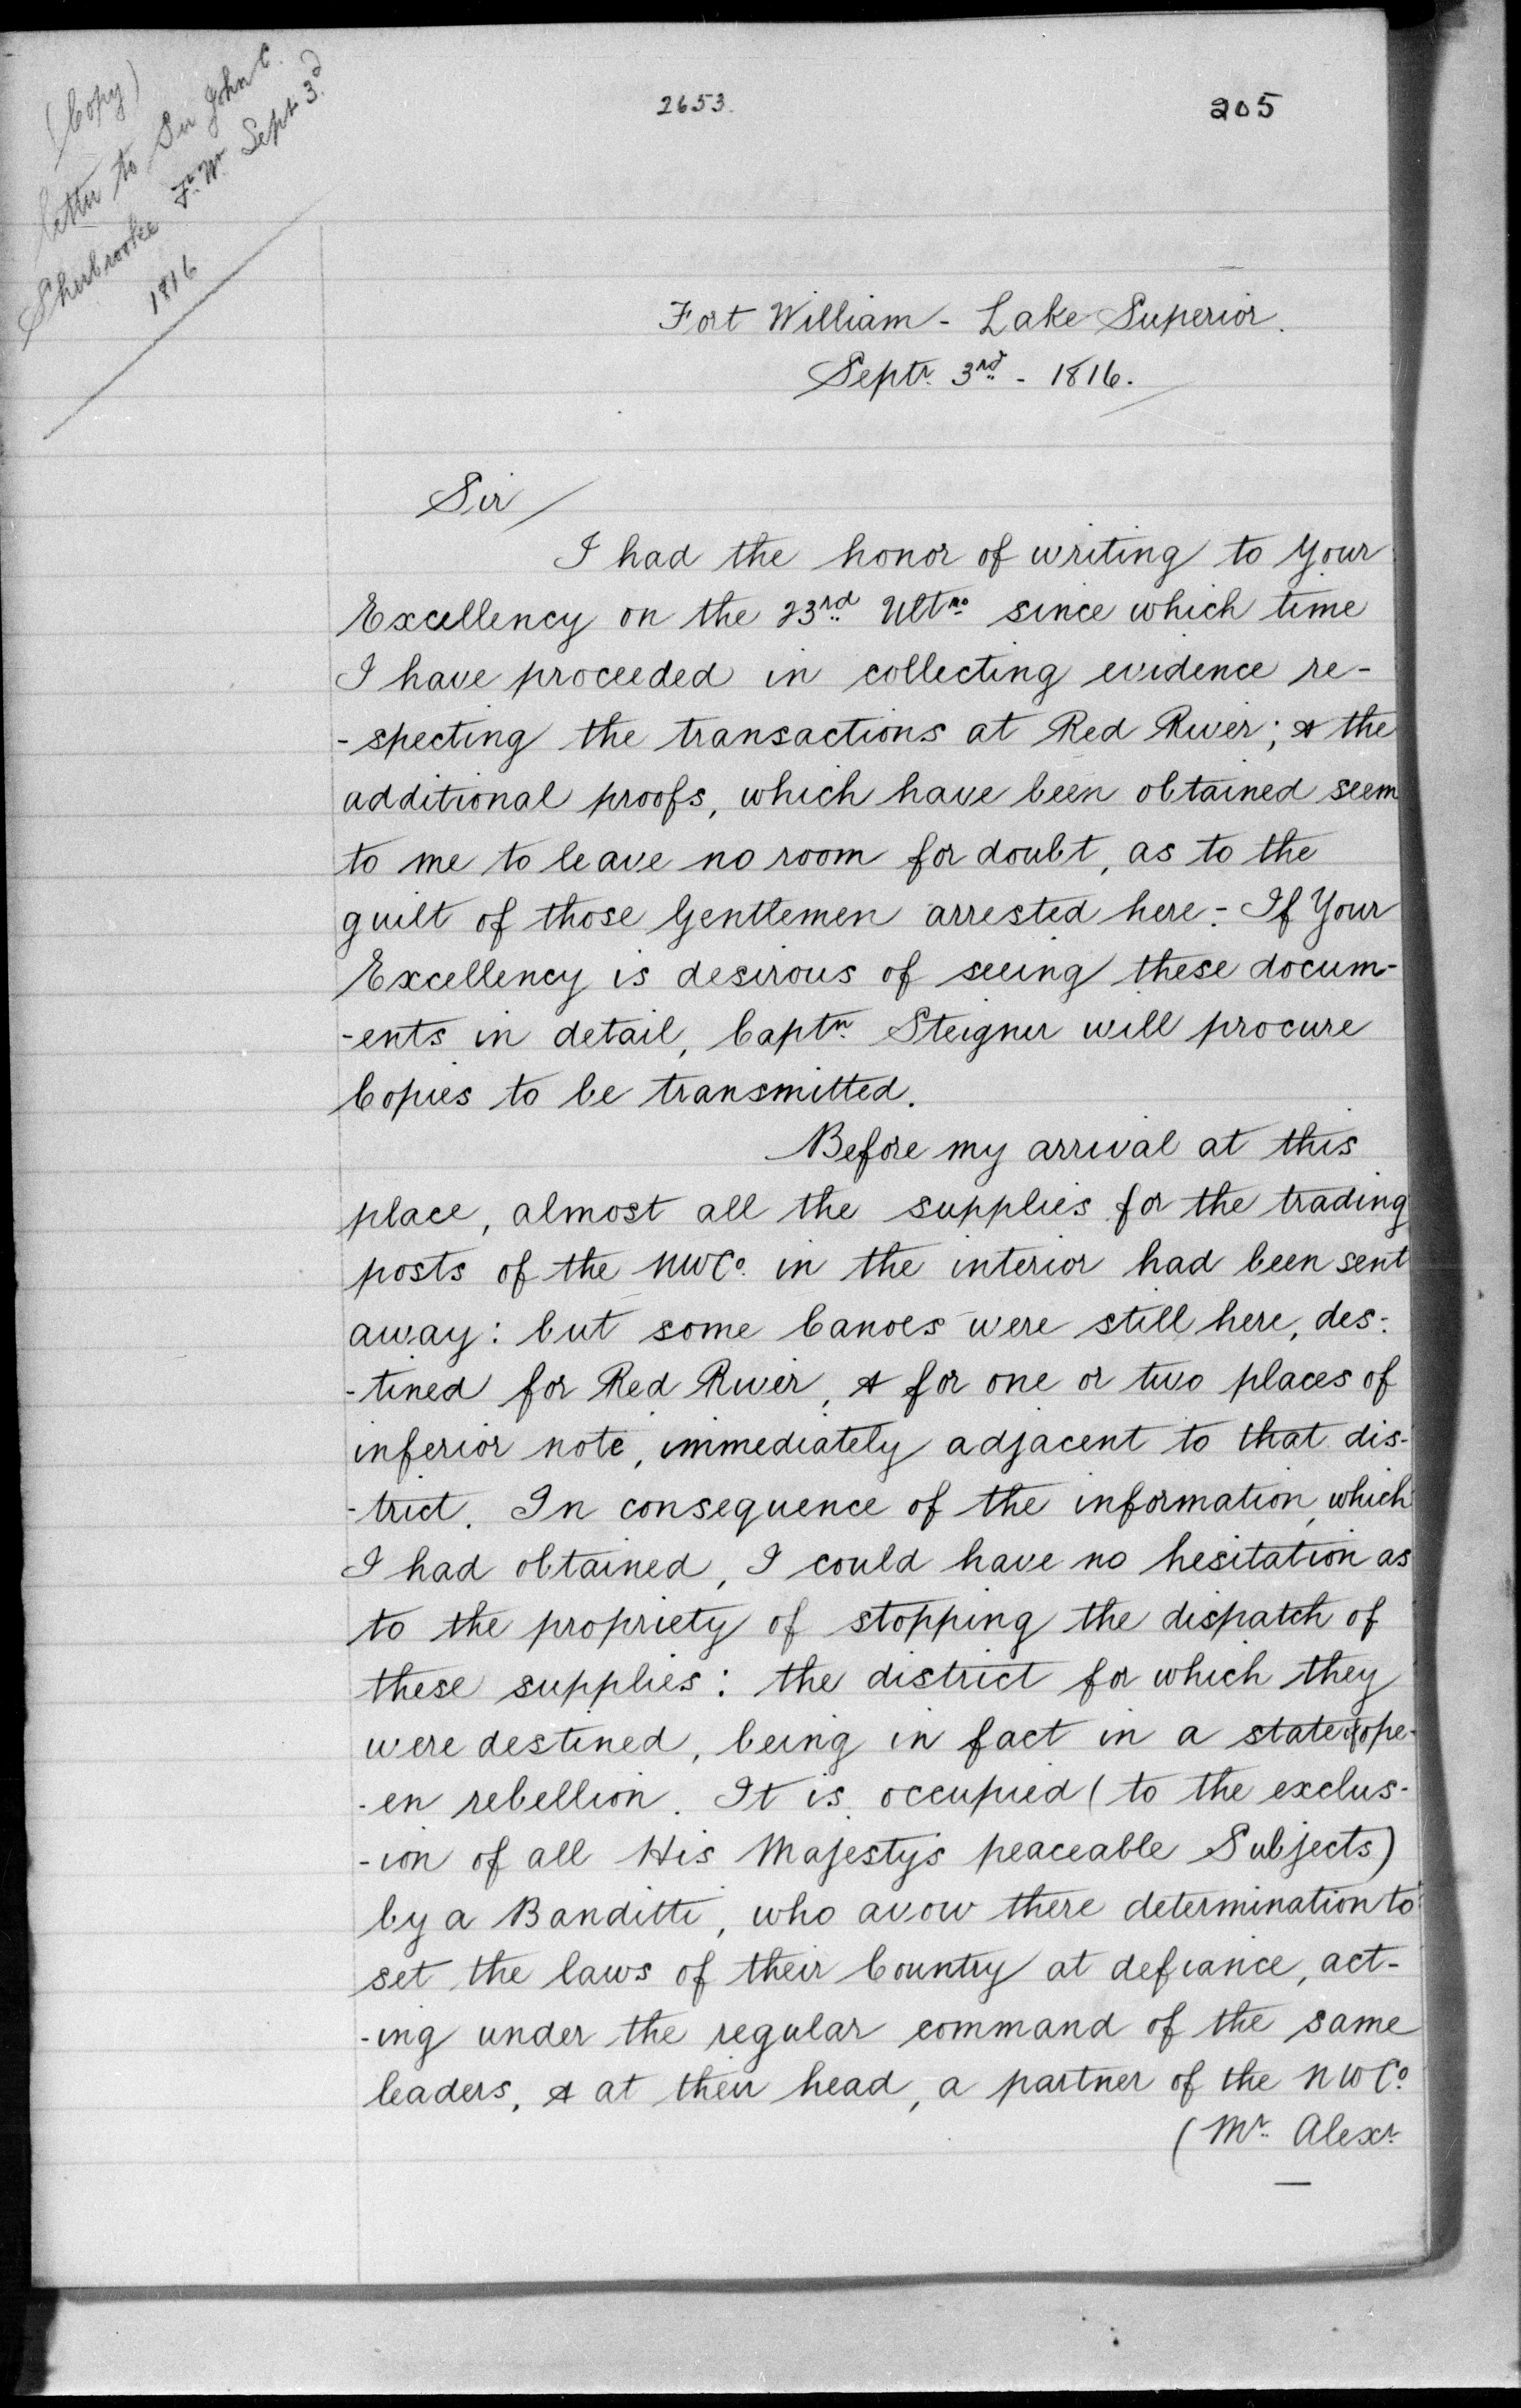 (Copy)
letter to Sir John C.
Sherbrooke Ft. Wm. Sept 3d
1816
2653.
205
Fort William - Lake Superior.
Septr. 3rd - 1816.
Sir/
I had the honor of writing to Your
Excellency on the 23rd Ultmo since which time
I have proceeded in collecting evidence re-
-specting the transactions at Red River; & the
additional proofs, which have been obtained seem
to me to leave no room for doubt, as to the
guilt of those Gentlemen arrested here - If Your
Excellency is desirous of seeing these docum-
-ents in detail, Captn. Steigner will procure
Copies to be transmitted.
Before my arrival at this
place, almost all the supplies for the trading
posts of the NWCo. in the interior had been sent
away: but some Canoes were still here, des-
-tined for Red River, & for one or two places of
inferior note, immediately adjacent to that dis-
-trict. In consequence of the information, which
I had obtained, I could have no hesitation as
to the propriety of stopping the dispatch of
these supplies: the district for which they
were destined, being in fact in a state of ope-
-en rebellion. It is occupied (to the exclus-
-ion of all His Majestys peaceable Subjects)
by a Banditti, who avow there determination to
set the laws of their Country at defiance, act-
-ing under the regular command of the same
leaders, & at their head, a partner of the NWCo.
(Mr. Alexr.